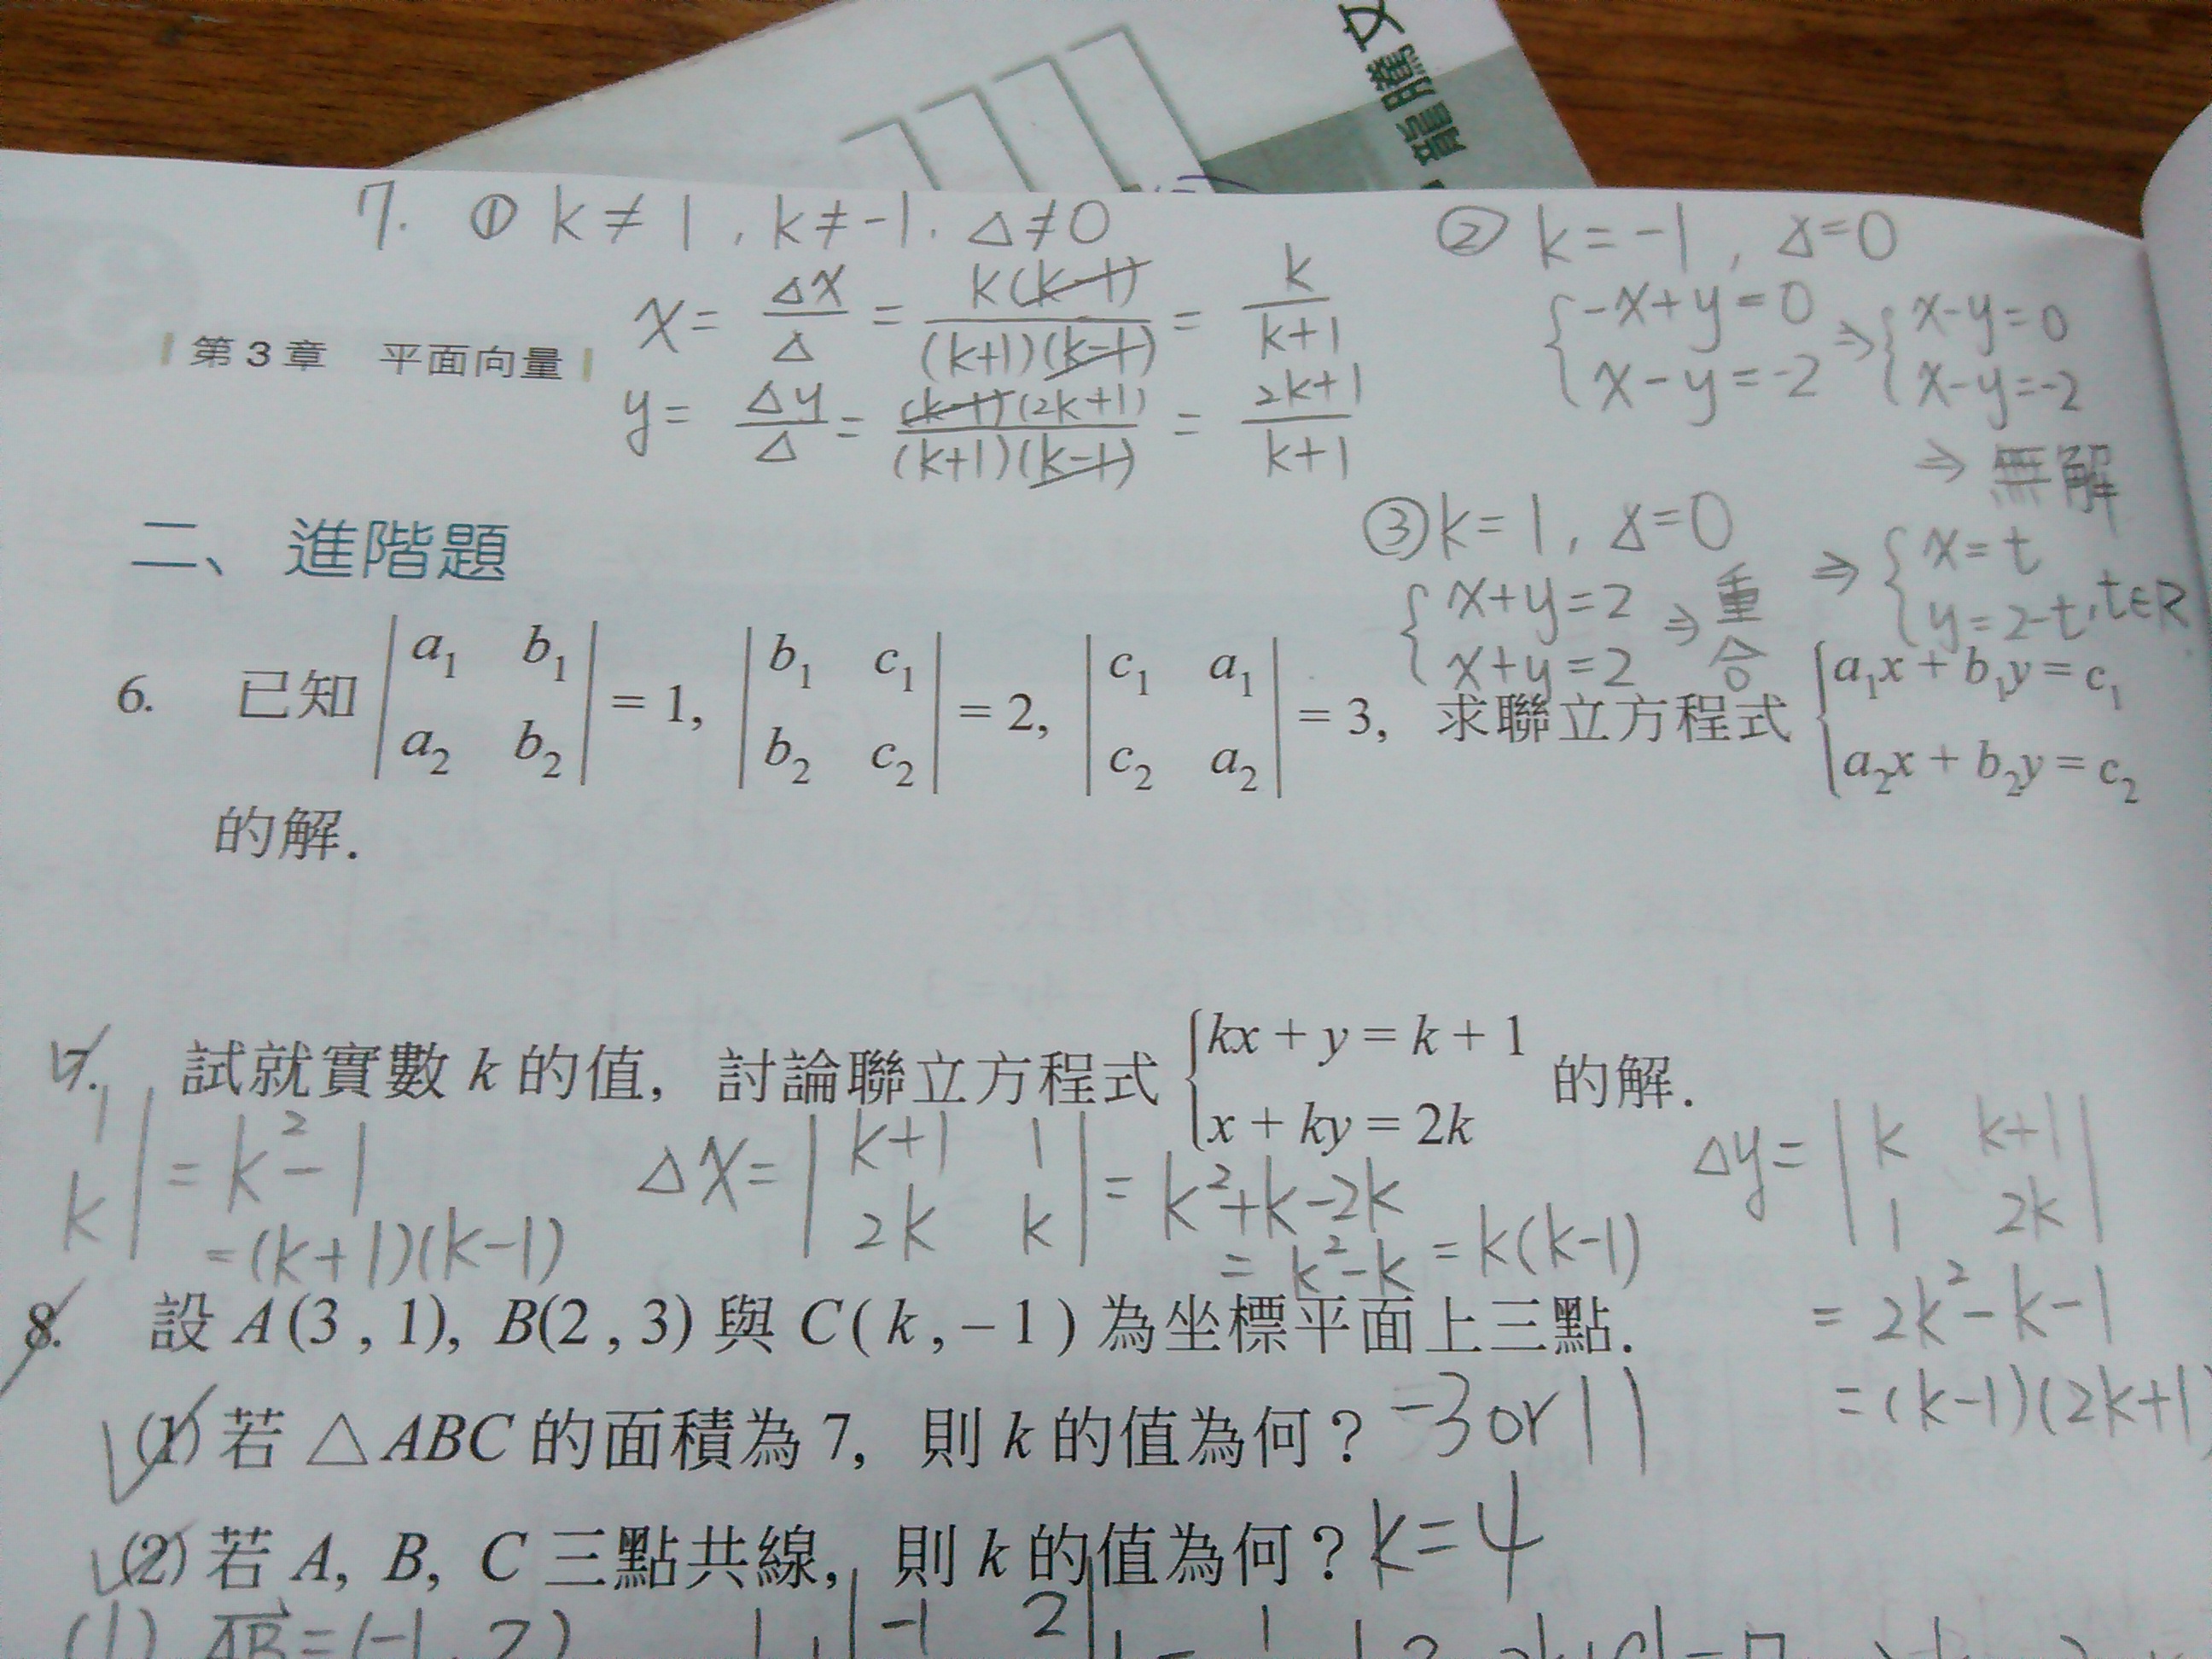 文
騰
龍
7. ① k≠1, k≠-1, △≠0
x = △x/△ = k(k-1)/(k+1)(k-1) = k/k+1
y = △y/△ = (k-1)(2k+1)/(k+1)(k-1) = 2k+1/k+1
② k=-1, △=0
{-x+y=0 ⇒ {x-y=0
{x-y=-2 {x-y=-2
⇒ 無解
③ k=1, △=0
{x+y=2 ⇒ 重 ⇒ {x=t
{x+y=2 合 {y=2-t, t∈R
第3章 平面向量
二、進階題
6. 已知 |a₁ b₁; a₂ b₂| = 1, |b₁ c₁; b₂ c₂| = 2, |c₁ a₁; c₂ a₂| = 3, 求聯立方程式 {a₁x + b₁y = c₁
{a₂x + b₂y = c₂
的解.
7. 試就實數 k 的值, 討論聯立方程式 {kx + y = k + 1 的解.
{x + ky = 2k
1
k | = k²-1
=(k+1)(k-1)
△x = |k+1 1; 2k k| = k²+k-2k
= k²-k = k(k-1)
△y = |k k+1; 1 2k|
= 2k²-k-1
=(k-1)(2k+1)
8. 設 A(3, 1), B(2, 3) 與 C(k, -1) 為坐標平面上三點.
(1) 若 △ABC 的面積為 7, 則 k 的值為何? -3 or 11
(2) 若 A, B, C 三點共線, 則 k 的值為何? k=4
(1) AB=(-1, 2) |-1 2|